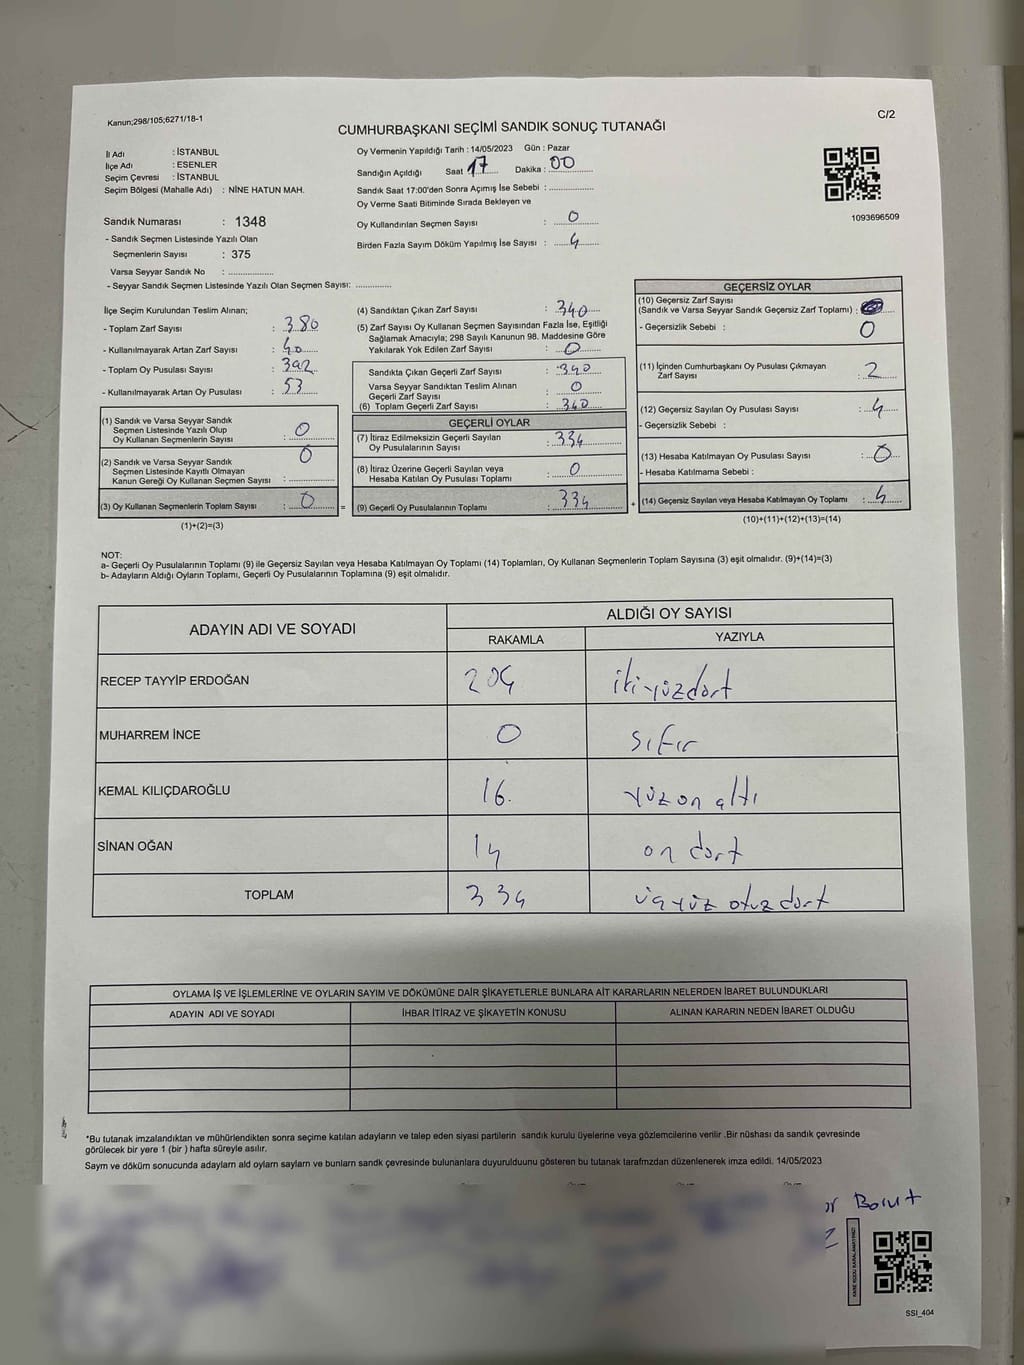 Kanun;298/105;6271/18-1
C/2
CUMHURBAŞKANI SEÇİMİ SANDIK SONUÇ TUTANAĞI
İl Adı : İSTANBUL
İlçe Adı : ESENLER
Seçim Çevresi : İSTANBUL
Seçim Bölgesi (Mahalle Adı) : NİNE HATUN MAH.
Oy Vermenin Yapıldığı Tarih : 14/05/2023 Gün : Pazar
Sandığın Açıldığı Saat 17 Dakika : 00
Sandık Saat 17:00'den Sonra Açımış İse Sebebi :
Oy Verme Saati Bitiminde Sırada Bekleyen ve
Oy Kullandırılan Seçmen Sayısı : 0
Birden Fazla Sayım Döküm Yapılmış İse Sayısı : 4
1093696509
Sandık Numarası : 1348
- Sandık Seçmen Listesinde Yazılı Olan
Seçmenlerin Sayısı : 375
Varsa Seyyar Sandık No :
- Seyyar Sandık Seçmen Listesinde Yazılı Olan Seçmen Sayısı:
İlçe Seçim Kurulundan Teslim Alınan;
- Toplam Zarf Sayısı : 380
- Kullanılmayarak Artan Zarf Sayısı : 40
- Toplam Oy Pusulası Sayısı : 392
- Kullanılmayarak Artan Oy Pusulası : 53
(1) Sandık ve Varsa Seyyar Sandık
Seçmen Listesinde Yazılı Olup
Oy Kullanan Seçmenlerin Sayısı : 0
(2) Sandık ve Varsa Seyyar Sandık
Seçmen Listesinde Kayıtlı Olmayan
Kanun Gereği Oy Kullanan Seçmen Sayısı : 0
(3) Oy Kullanan Seçmenlerin Toplam Sayısı : 0 =
(1)+(2)=(3)
(4) Sandıktan Çıkan Zarf Sayısı : 340
(5) Zarf Sayısı Oy Kullanan Seçmen Sayısından Fazla İse, Eşitliği
Sağlamak Amacıyla; 298 Sayılı Kanunun 98. Maddesine Göre
Yakılarak Yok Edilen Zarf Sayısı : 0
Sandıkta Çıkan Geçerli Zarf Sayısı : 340
Varsa Seyyar Sandıktan Teslim Alınan
Geçerli Zarf Sayısı : 0
(6) Toplam Geçerli Zarf Sayısı : 340
GEÇERLİ OYLAR
(7) İtiraz Edilmeksizin Geçerli Sayılan
Oy Pusulasının Sayısı : 334
(8) İtiraz Üzerine Geçerli Sayılan veya
Hesaba Katılan Oy Pusulası Toplamı : 0
(9) Geçerli Oy Pusulalarının Toplamı : 334 +
GEÇERSİZ OYLAR
(10) Geçersiz Zarf Sayısı
(Sandık ve Varsa Seyyar Sandık Geçersiz Zarf Toplamı) :
- Geçersizlik Sebebi : 0
(11) İçinden Cumhurbaşkanı Oy Pusulası Çıkmayan
Zarf Sayısı : 2
(12) Geçersiz Sayılan Oy Pusulası Sayısı : 4
- Geçersizlik Sebebi :
(13) Hesaba Katılmayan Oy Pusulası Sayısı : 0
- Hesaba Katılmama Sebebi :
(14) Geçersiz Sayılan veya Hesaba Katılmayan Oy Toplamı : 4
(10)+(11)+(12)+(13)=(14)
NOT:
a- Geçerli Oy Pusulalarının Toplamı (9) ile Geçersiz Sayılan veya Hesaba Katılmayan Oy Toplamı (14) Toplamları, Oy Kullanan Seçmenlerin Toplam Sayısına (3) eşit olmalıdır. (9)+(14)=(3)
b- Adayların Aldığı Oyların Toplamı, Geçerli Oy Pusulalarının Toplamına (9) eşit olmalıdır.
ADAYIN ADI VE SOYADI
ALDIĞI OY SAYISI
RAKAMLA YAZIYLA
RECEP TAYYİP ERDOĞAN 204 ikiyüzdört
MUHARREM İNCE 0 sıfır
KEMAL KILIÇDAROĞLU 16. yüz on altı
SİNAN OĞAN 14 on dört
TOPLAM 334 üçyüz otuz dört
OYLAMA İŞ VE İŞLEMLERİNE VE OYLARIN SAYIM VE DÖKÜMÜNE DAİR ŞİKAYETLERLE BUNLARA AİT KARARLARIN NELERDEN İBARET BULUNDUKLARI
ADAYIN ADI VE SOYADI İHBAR İTİRAZ VE ŞİKAYETİN KONUSU ALINAN KARARIN NEDEN İBARET OLDUĞU
*Bu tutanak imzalandıktan ve mühürlendikten sonra seçime katılan adayların ve talep eden siyasi partilerin sandık kurulu üyelerine veya gözlemcilerine verilir .Bir nüshası da sandık çevresinde
görülecek bir yere 1 (bir ) hafta süreyle asılır.
Saym ve döküm sonucunda adaylarn ald oylarn saylarn ve bunlarn sandk çevresinde bulunanlara duyurulduunu gösteren bu tutanak tarafmzdan düzenlenerek imza edildi. 14/05/2023
SSI_404